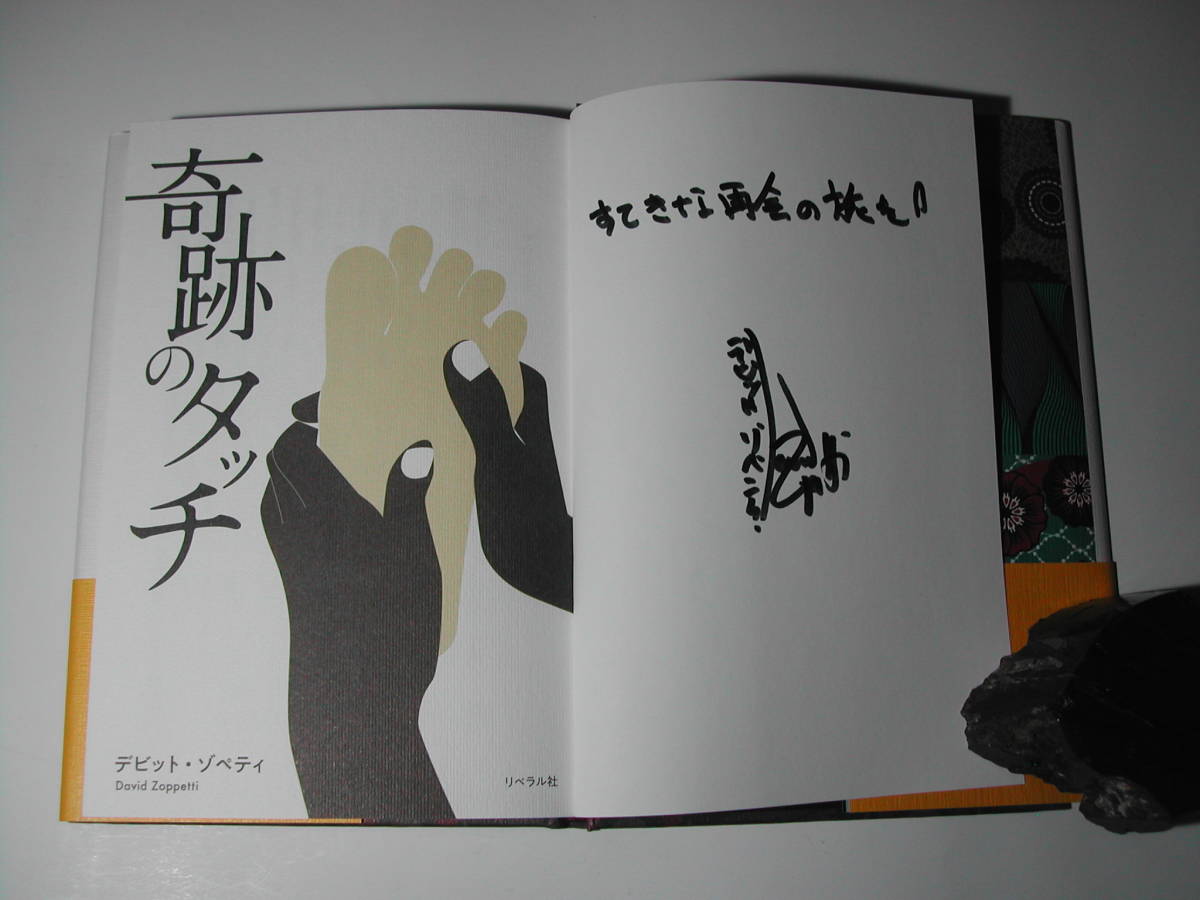 奇跡のタッチ
デビット・ゾペティ
David Zoppetti
リベラル社
すてきな再会の旅を!!
デビット ゾペティ